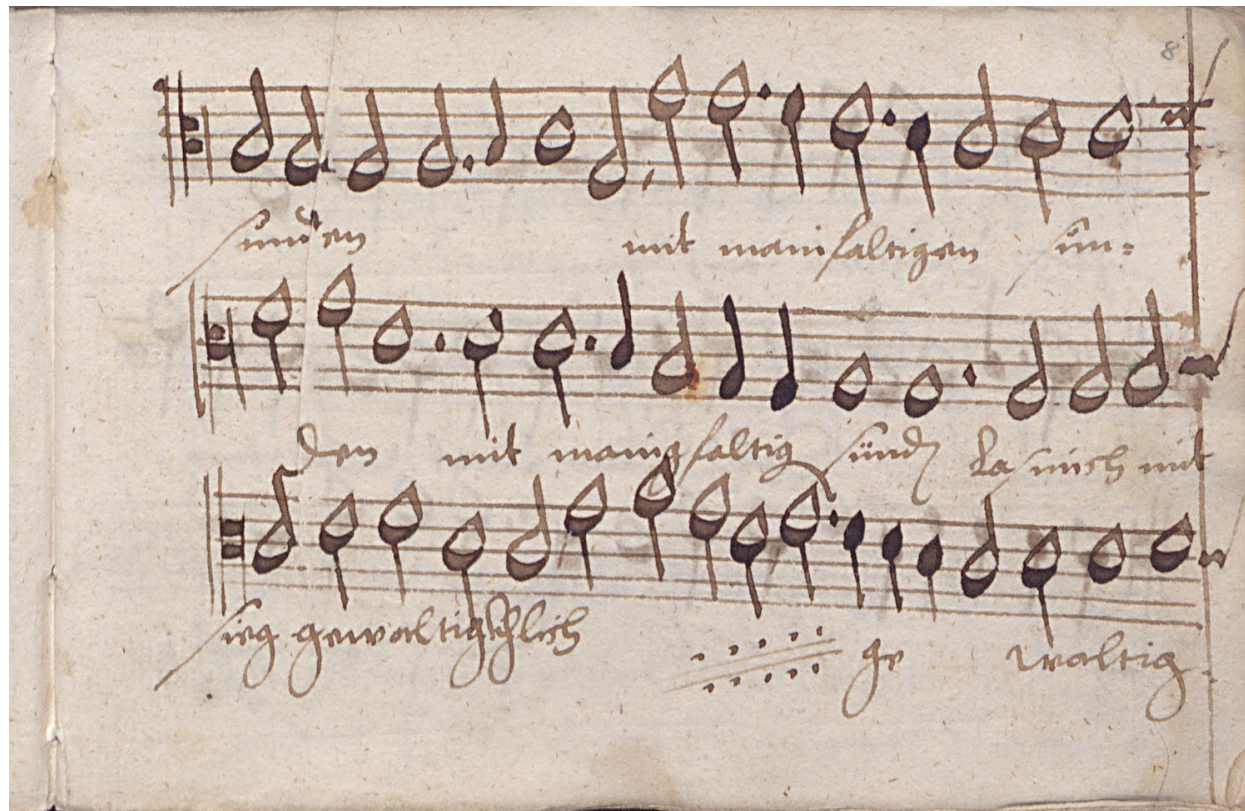 8
sünden mit manifaltigen sün=
den mit manigfaltig sünd las mich mit
sieg gewaltichlich ge waltig